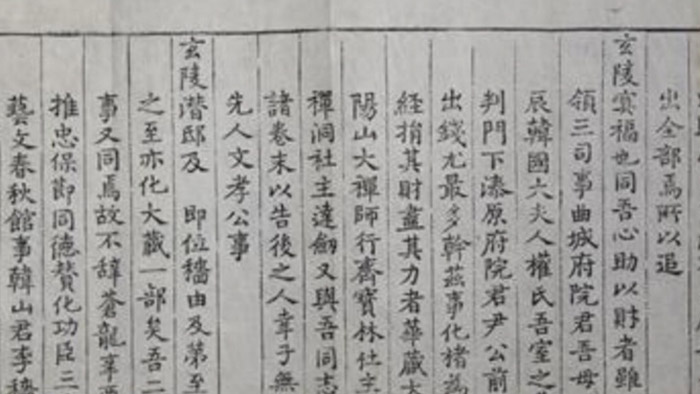 出全部焉所以追
玄陵冥福也同吾心助以財者雖
領三司事曲城府院君吾母
辰韓國大夫人權氏吾室之
判門下漆原府院君尹公前
出錢尤最多幹茲事化楮為
經捐其財盡其力者華藏大
陽山大禪師行齋寶林社主
禪洞社主達劒又與吾同志
諸卷末以告後之人幸予無
先人文孝公事
玄陵潛邸及 即位穡由及第至
之至亦化大藏一部矣吾二
事又同焉故不辭蒼龍辛酉
推忠保節同德贊化功臣三
藝文春秋館事韓山君李穡